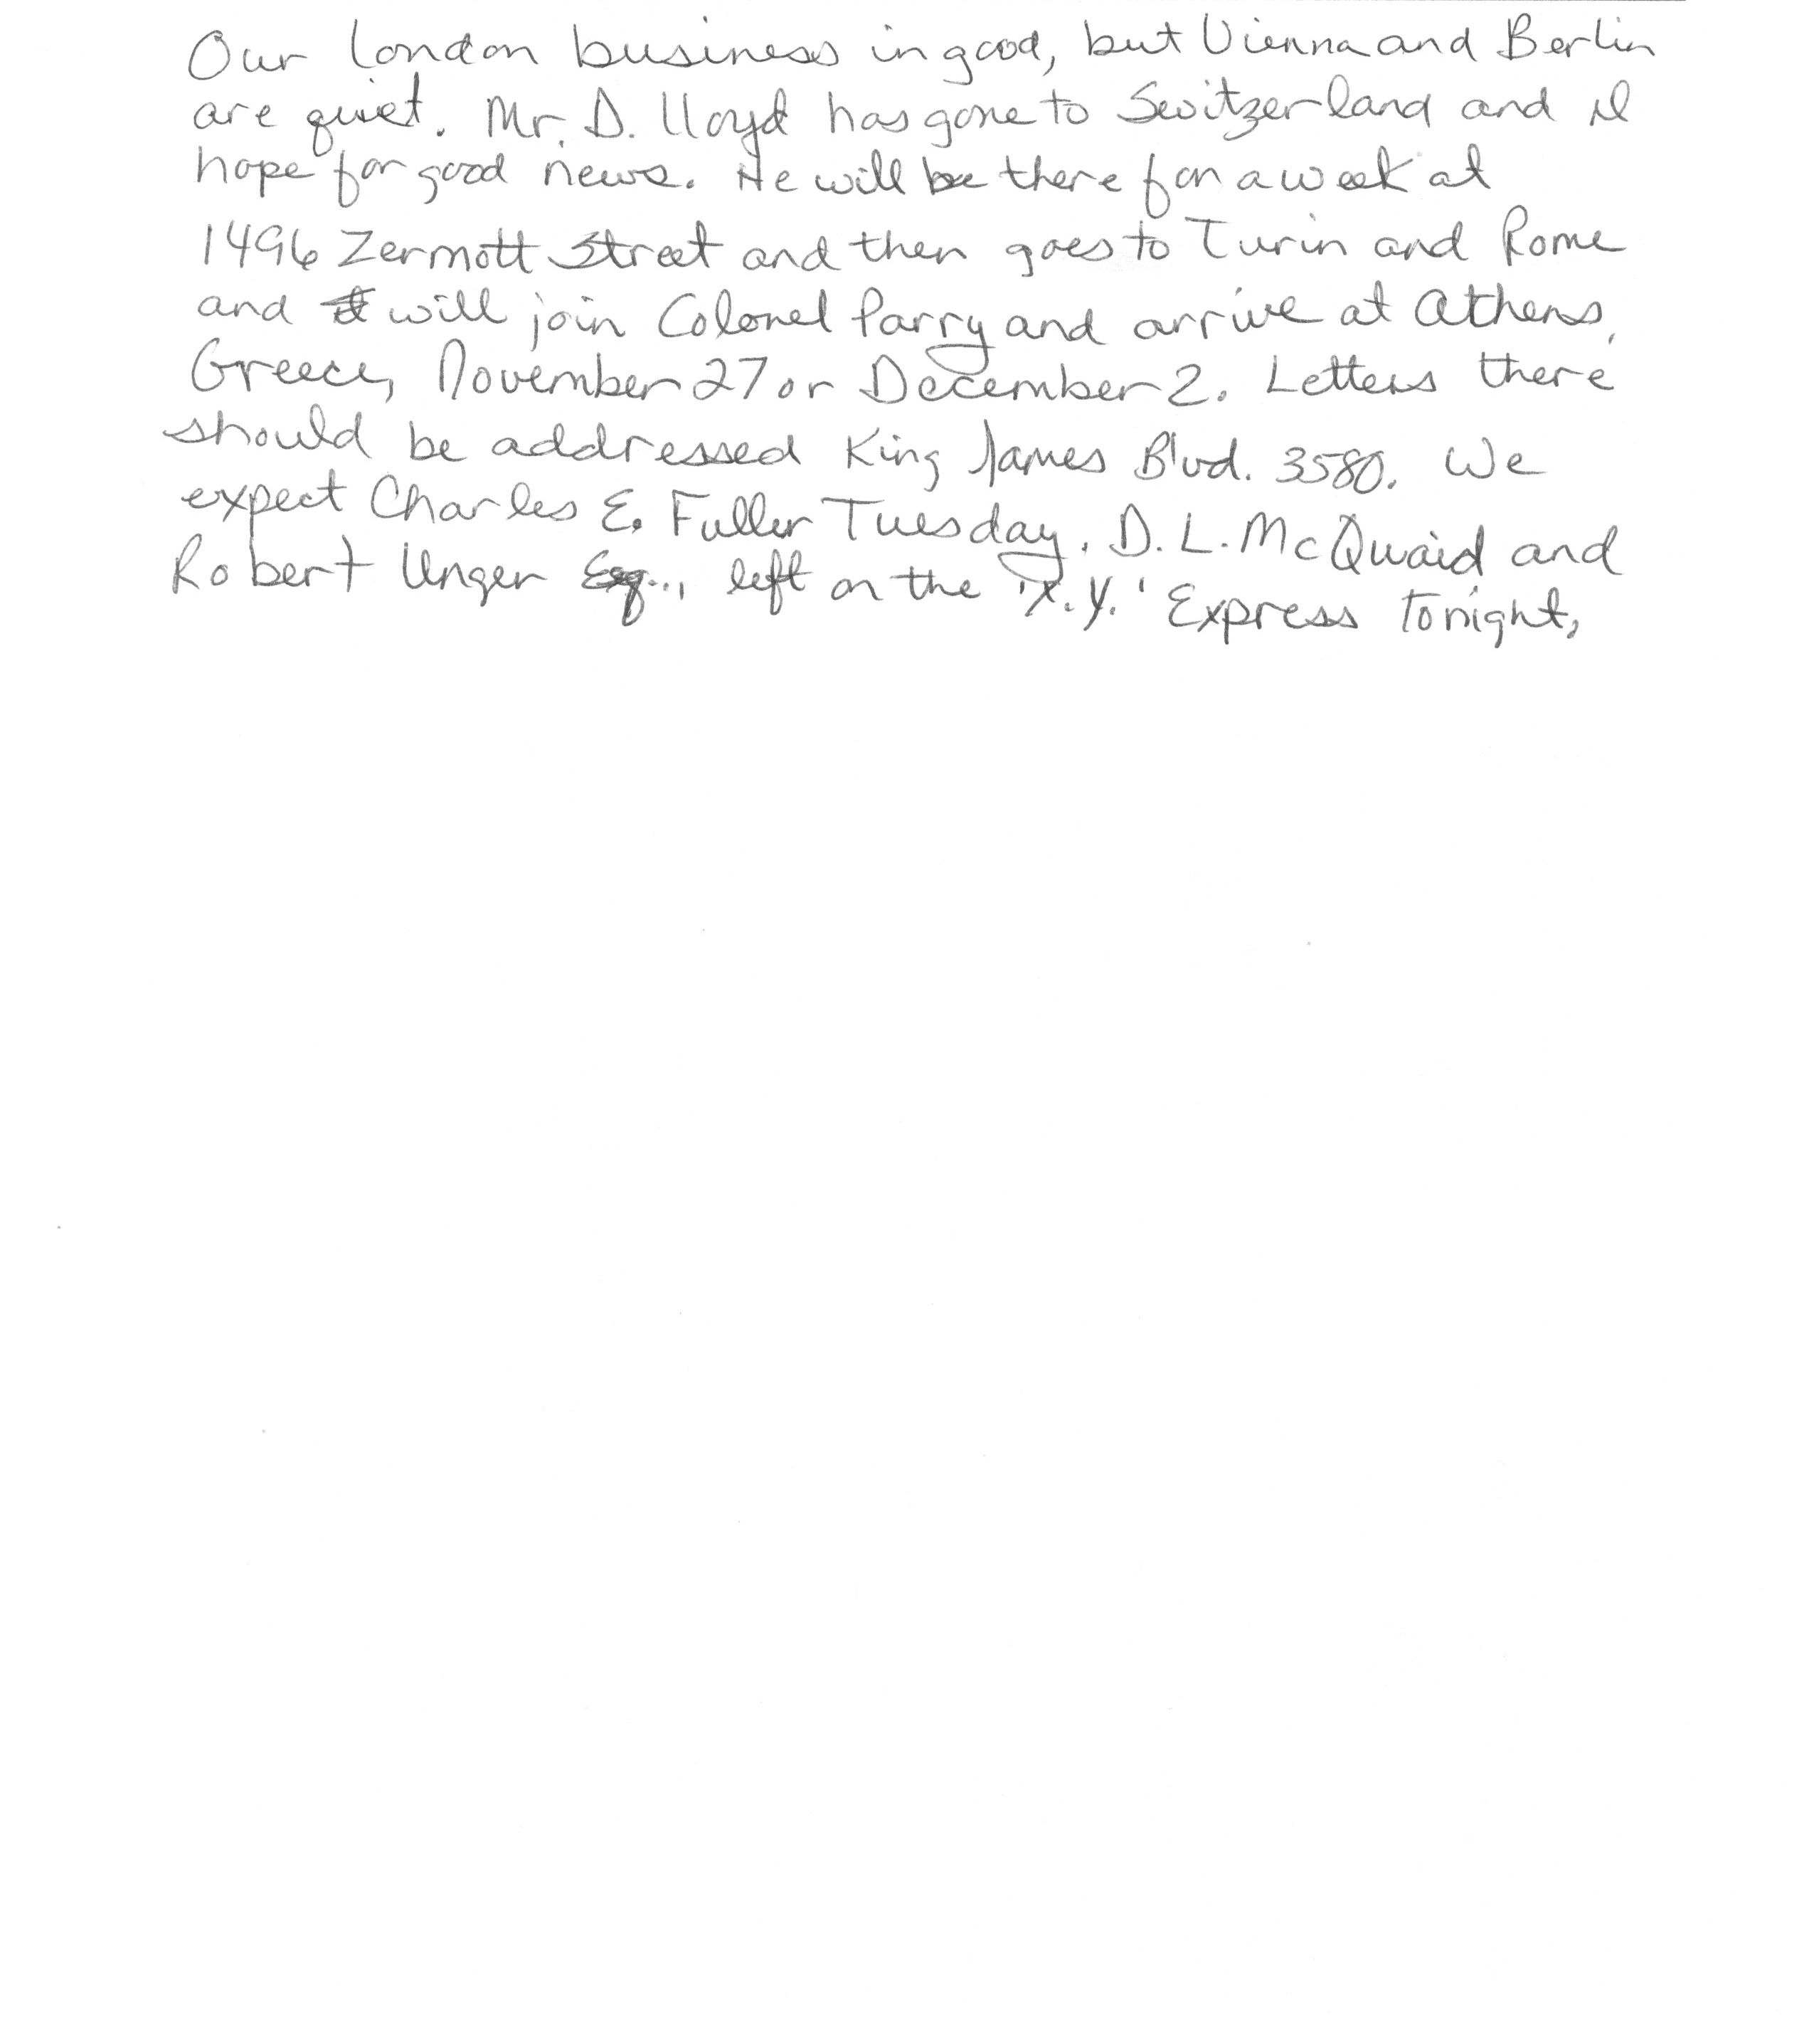 Our London business in good, but Vienna and Berlin
are quiet. Mr. D. Lloyd has gone to Switzerland and I
hope for good news. He will be there for a week at
1496 Zermott Street and then goes to Turin and Rome
and will join Colonel Parry and arrive at Athens,
Greece, November 27 or December 2. Letters there
should be addressed King James Blvd. 3580. We
expect Charles E. Fuller Tuesday. D. L. McQuaid and
Robert Unger Esq., left on the 'X.Y.' Express tonight,